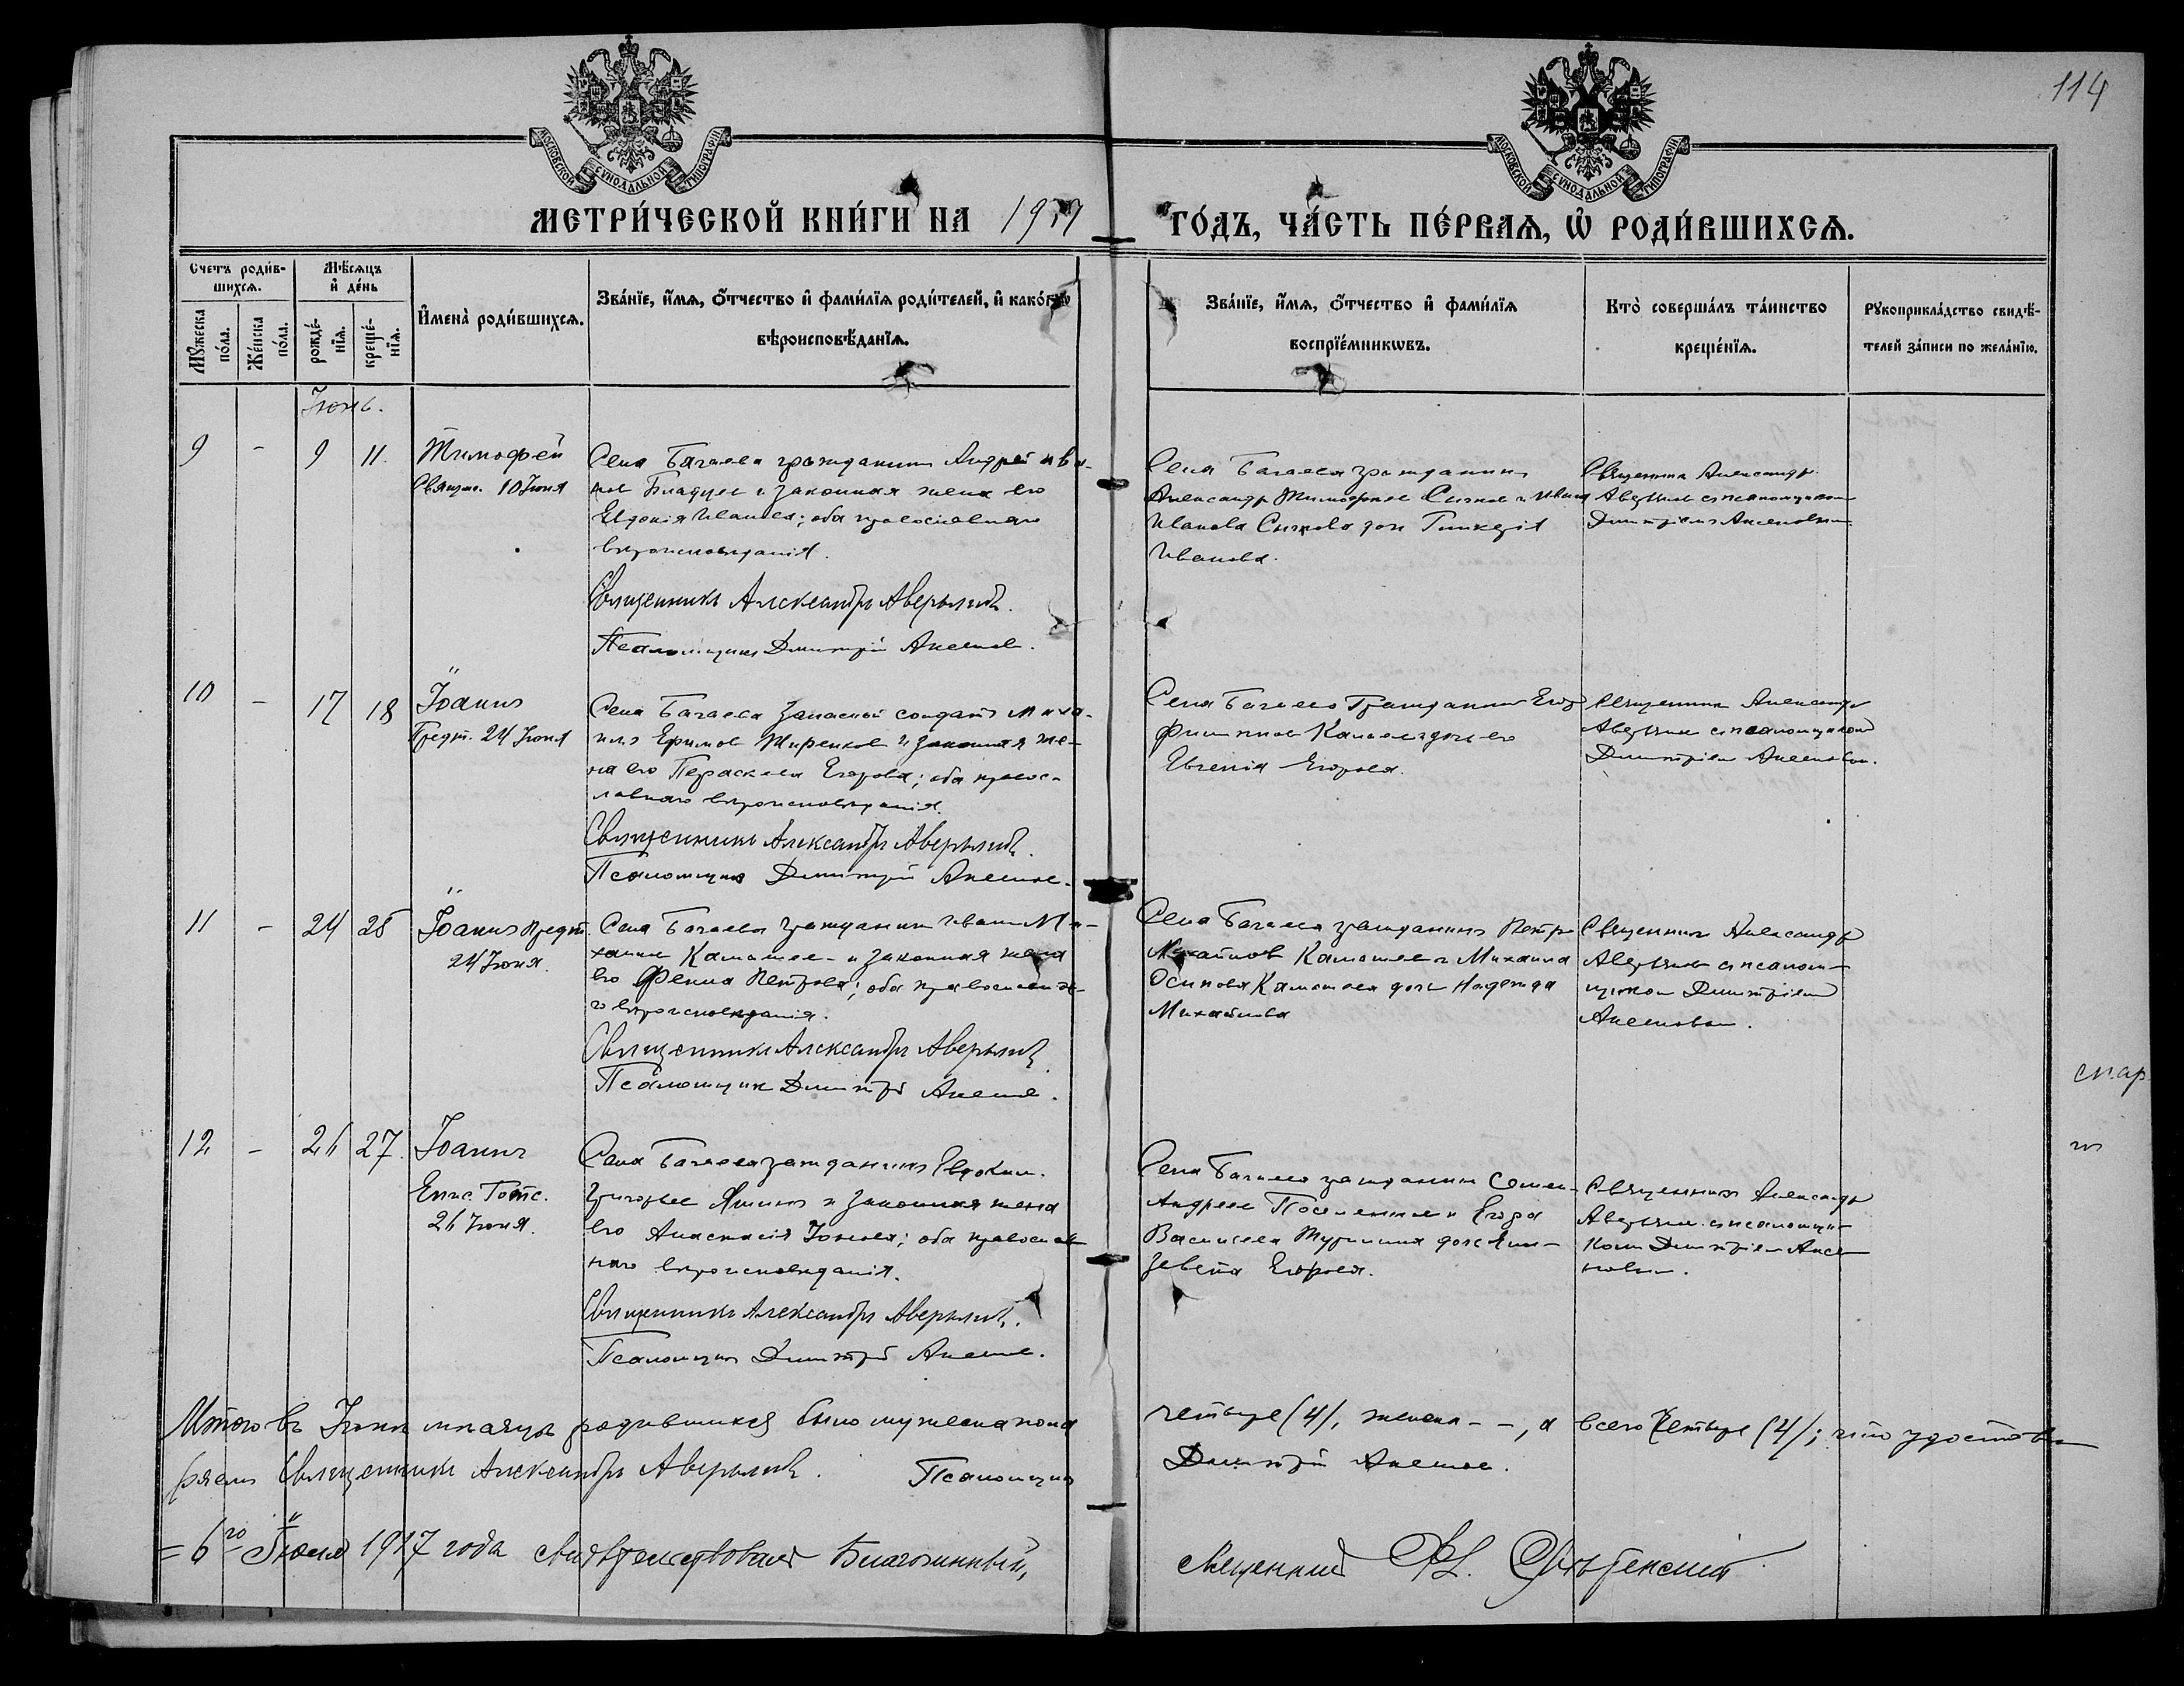 114
МОСКОВСКОЙ СѴНОДАЛЬНОЙ ТИПОГРАФІИ
МОСКОВСКОЙ СѴНОДАЛЬНОЙ ТИПОГРАФІИ
МЕТРИ́ЧЕСКОЙ КНИ́ГИ НА 1917 ГО́ДЪ, ЧА́СТЬ ПЕ́РВАѦ, Ѡ҆ РОДИ́ВШИХСѦ.
Счетъ роди́в-
шихсѧ.
Мѣ́сѧцъ
и҆ де́нь
Мꙋ́жеска
по́ла.
Же́нска
по́ла.
рожде́-
нїѧ.
креще́-
нїѧ.
И҆мена̀ роди́вшихсѧ.
Зва́нїе, и҆́мѧ, ѻ҆́тчество и҆ фами́лїѧ роди́телей, и҆ како́гѡ
вѣроисповѣ́данїѧ.
Зва́нїе, и҆́мѧ, ѻ҆́тчество и҆ фами́лїѧ
воспрїе́мникѡвъ.
Кто̀ соверша́лъ та́инство
креще́нїѧ.
Рꙋкоприкла́дство свидѣ́-
телей за́писи по жела́нїю.
Іюнь.
9 - 9 11. Тимофей
Священ. 10 Іюня
Села Багаева гражданинъ Андрей Ива-
новъ и законная жена его
Евдокія Иванова; оба православнаго
вѣроисповѣданія.
Священникъ Александръ Аверьяновъ.
Псаломщикъ Димитрій Аксеновъ.
Села Багаева гражданинъ
Александръ Тимофеевъ Сычковъ и
Иванова Сычкова дочь
Иванова.
Священникъ Александръ
Аверьяновъ съ псаломщикомъ
Димитріемъ Аксеновымъ
10 - 17 18 Іоаннъ
Предт. 24 Іюня
Села Багаева запасной солдатъ Миха-
илъ Ефимовъ и законная же-
на его Параскева Егорова; оба правос-
лавнаго вѣроисповѣданія.
Священникъ Александръ Аверьяновъ.
Псаломщикъ Димитрій Аксеновъ.
Села Багаева Гражданинъ Егоръ
Филипповъ дочь его
Евгенія Егорова.
Священникъ Александръ
Аверьяновъ съ псаломщикомъ
Димитріемъ Аксеновымъ.
11 - 24 25 Іоаннъ Предт.
24 Іюня.
Села Багаева гражданинъ Иванъ Ми-
хаиловъ Камашевъ и законная жена
его Фекла Петрова; оба православна-
го вѣроисповѣданія.
Священникъ Александръ Аверьяновъ
Псаломщикъ Димитрій Аксеновъ.
Села Багаева гражданинъ Петръ
Михайловъ Камашевъ и Михаила
Осипова Камашева дочь Надежда
Михайлова
Священникъ Александръ
Аверьяновъ съ псалом-
щикомъ Димитріемъ
Аксеновымъ.
12 - 26 27. Іоаннъ
Епис. Готс.
26 Іюня.
Села Багаева гражданинъ Евдокимъ
Григорьевъ Яшинъ и законная жена
его Анастасія Іонова; оба православ-
наго вѣроисповѣданія.
Священникъ Александръ Аверьяновъ.
Псаломщикъ Димитрій Аксеновъ.
Села Багаева гражданинъ Семенъ
Андреевъ и Егора
Васильева дочь Ели-
завета Егорова.
Священникъ Александръ
Аверьяновъ съ псаломщи-
комъ Димитріемъ Аксе-
новымъ.
Итого въ Іюнѣ мѣсяцѣ родившихся было мужеска пола четыре (4), женска - -, а всего четыре (4); что удостовѣ-
ряемъ Священникъ Александръ Аверьяновъ. Псаломщикъ Димитрій Аксеновъ.
= 6го Іюля 1917 года свидѣтельствовалъ Благочинный, священникъ